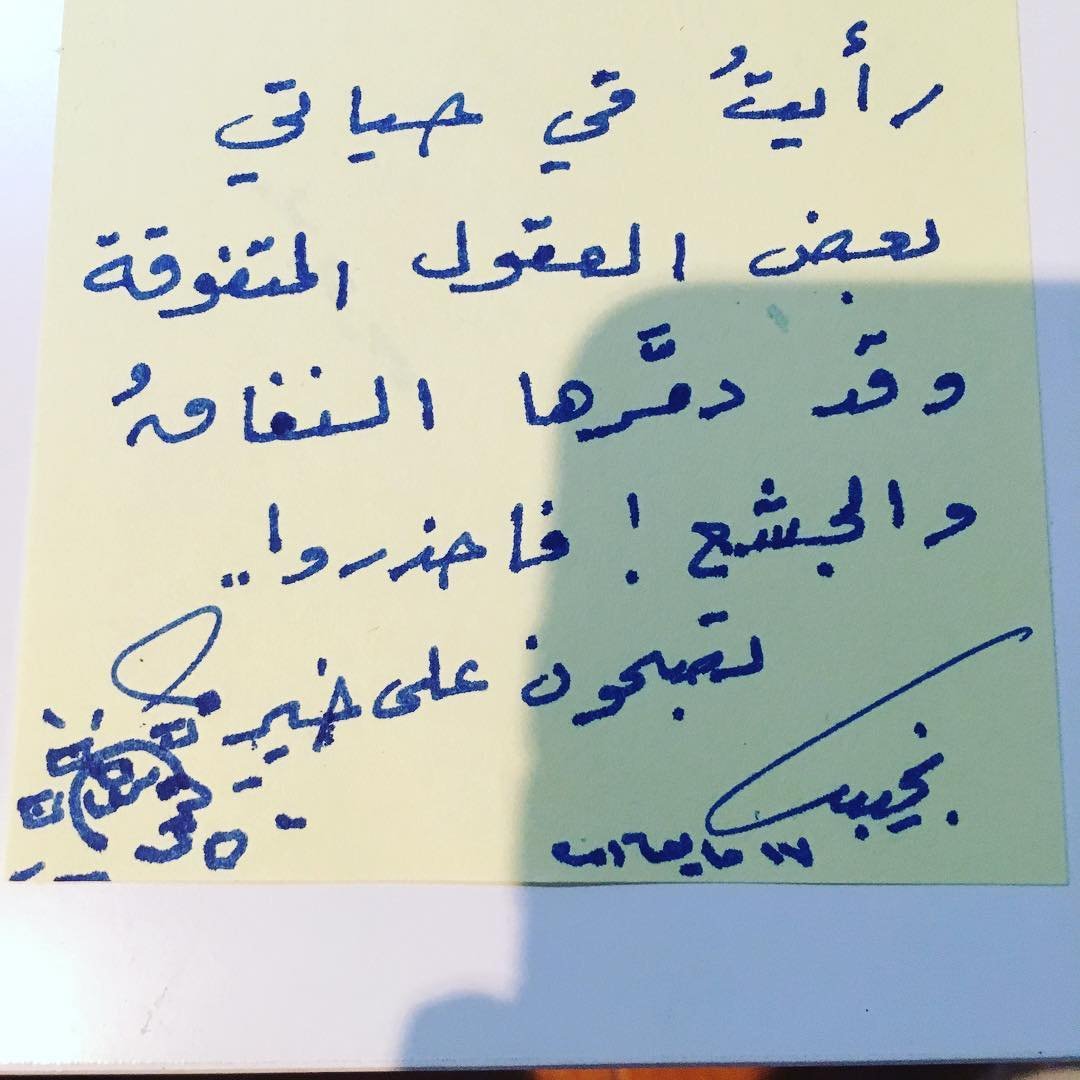 رأيتُ في حياتي
بعض العقول المتفوقة
وقد دمَّرها النفاقُ
والجشع! فاحذروا..
تصبحون على خير
نجيب
30